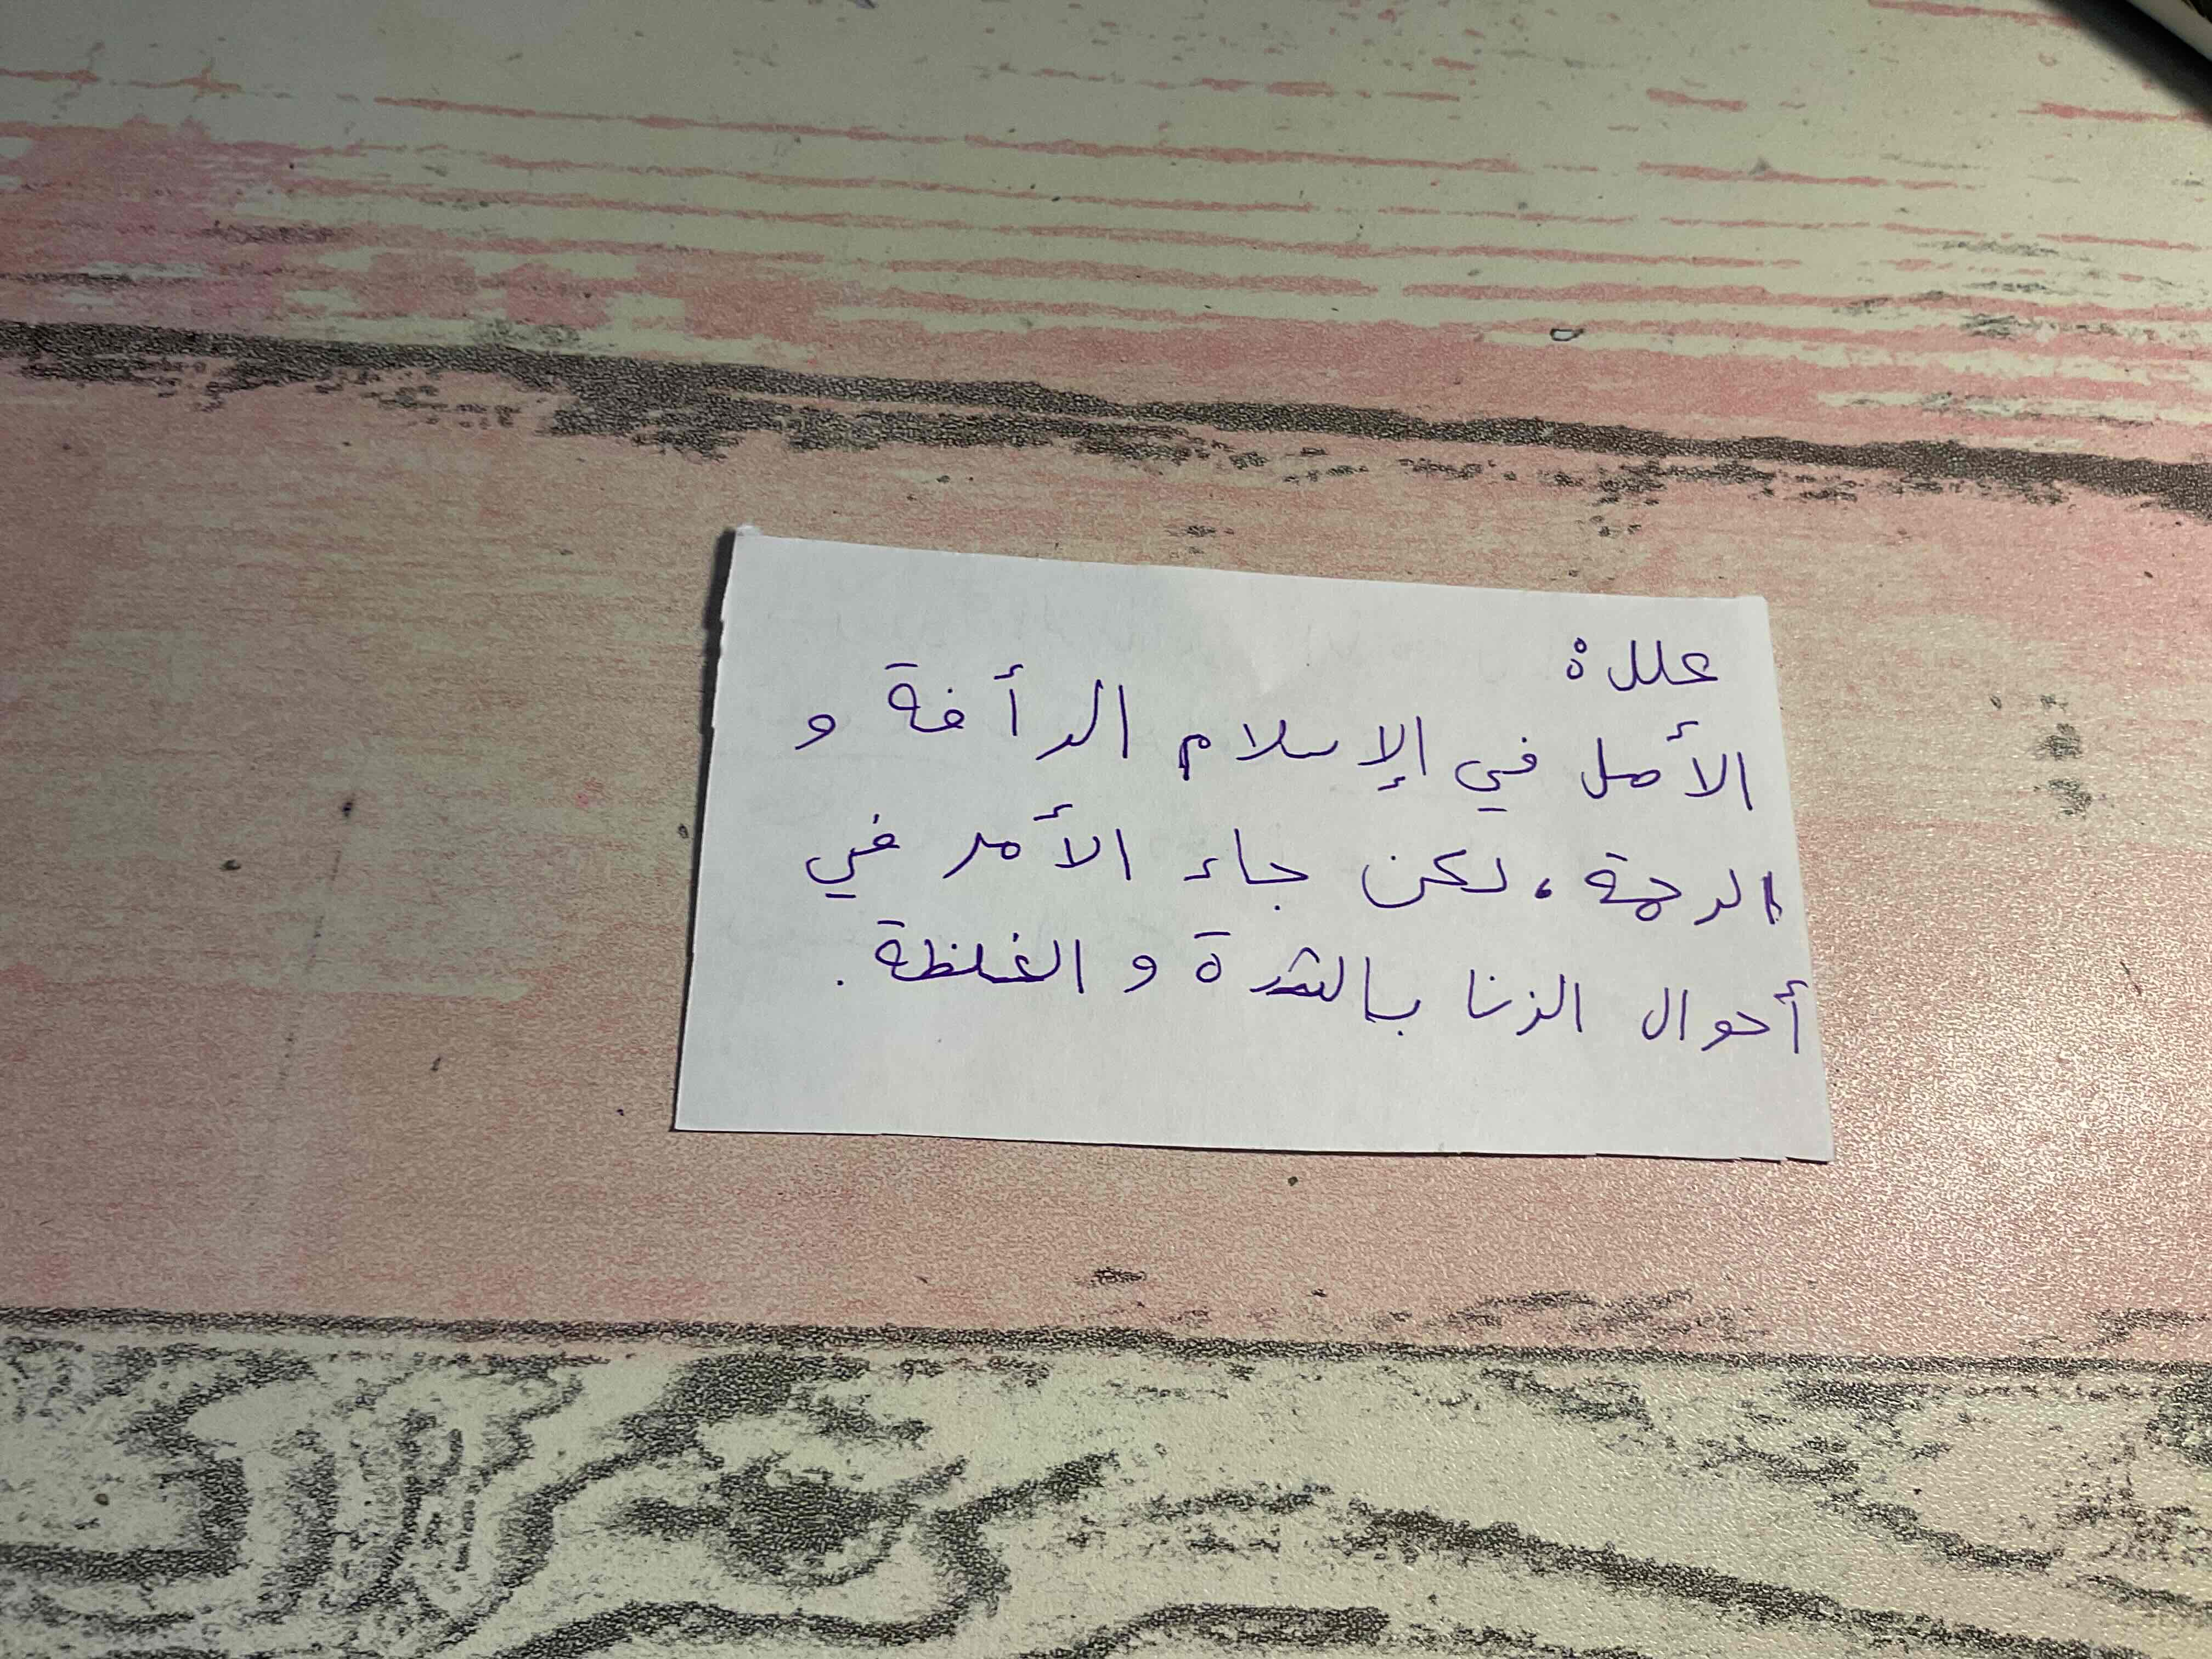 علل:
الأصل في الإسلام الرأفة و
الرحمة، لكن جاء الأمر في
أحوال الزنا بالشدة و الغلظة.